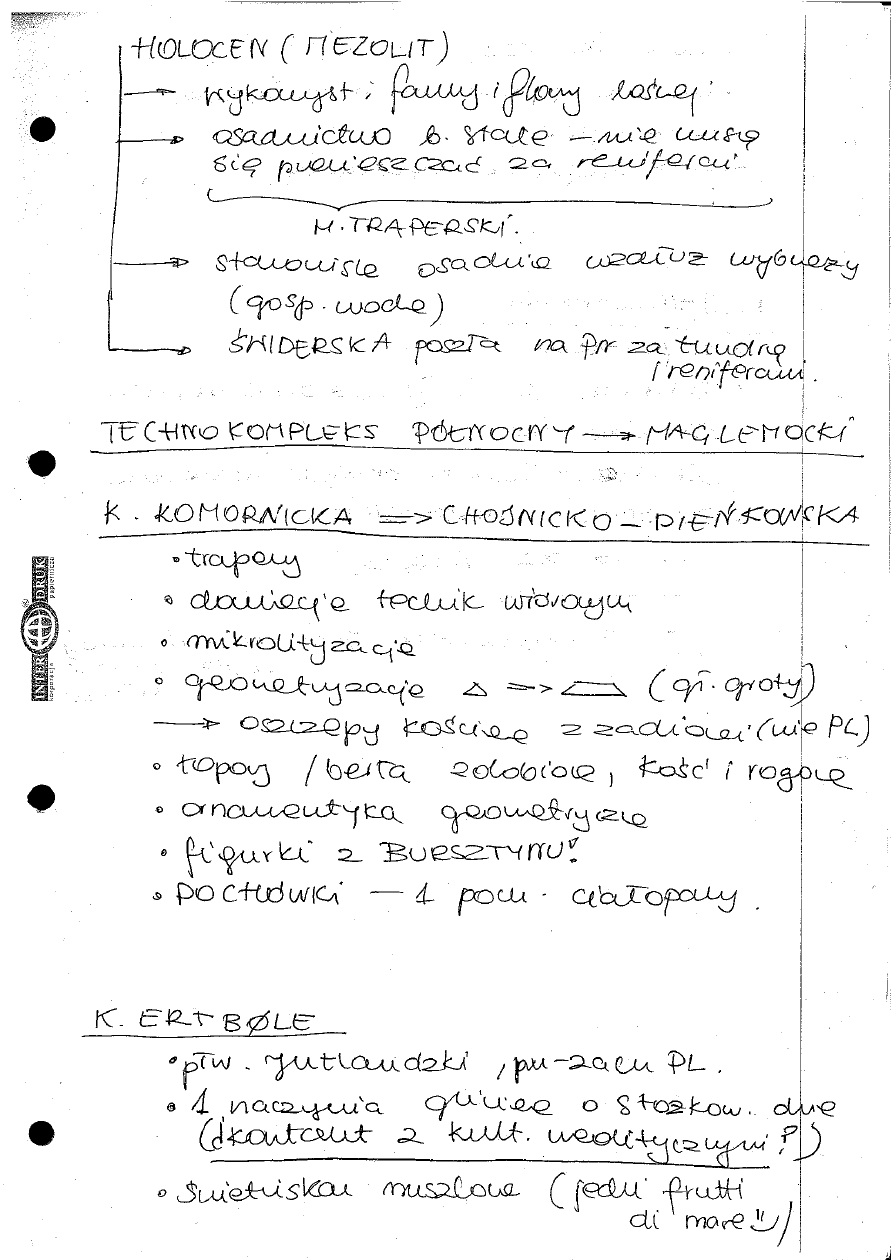 HOLOCEN (MEZOLIT)
→ wykorzyst. fauny i flory leśnej
→ osadnictwo b. stałe – nie muszą
się przemieszczać za reniferami
M. TRAPERSKI.
→ stanowiska osadnicze wzdłuż wybrzeży
(gosp. wodna)
→ ŚWIDERSKA poszła na Pn za tundrą
i reniferami.
TECHNOKOMPLEKS PÓŁNOCNY → MAGLEMOCKI
K. KOMORNICKA => CHOJNICKO – PIEŃKOWSKA
• trapezy
• dominacja technik wiórowym
• mikrolityzacja
• geometryzacja △ => (gł. groty)
→ oszczepy kościane z zadziorami (nie PL)
• topory / berła zdobione, kość i rogowe
• ornamentyka geometryczna
• figurki z BURSZTYNU!
• POCHÓWKI – 1 poch. ciałopalny.
K. ERTBØLE
• płw. Jutlandzki, pn-zach PL.
• 1 naczynia gliniane o stożkow. dnie
(kontakt z kult. neolitycznymi?)
• Śmietniska muszlowe (jedli frutti
di mare)
INTER DRUK
korporacja papiernicza